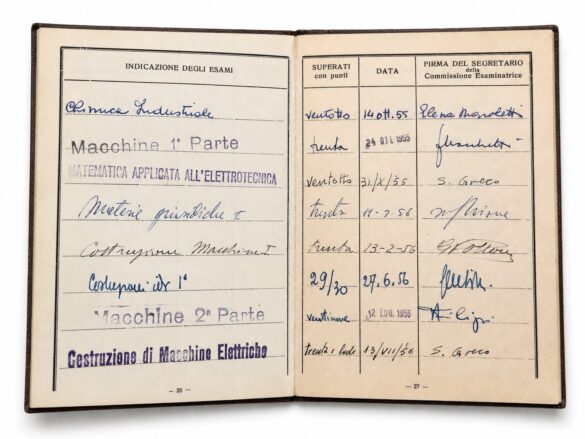 INDICAZIONE DEGLI ESAMI
Chimica Industriale
Macchine 1ª Parte
MATEMATICA APPLICATA ALL'ELETTROTECNICA
Materie giuridiche I
Costruzione Macchine I
Costruzioni idr 1°
Macchine 2ª Parte
Costruzione di Macchine Elettriche
— 26 —
SUPERATI con punti DATA FIRMA DEL SEGRETARIO della Commissione Esaminatrice
ventotto 14 ott. 55 Elena
trenta 24 OTT. 1955
ventotto 31/X/55 S. Greco
trenta 11-2-56
trenta 13-2-56
29/30 27.6.56
ventinove 12 LUG. 1956
trenta e lode 13/VII/56 S. Greco
— 27 —